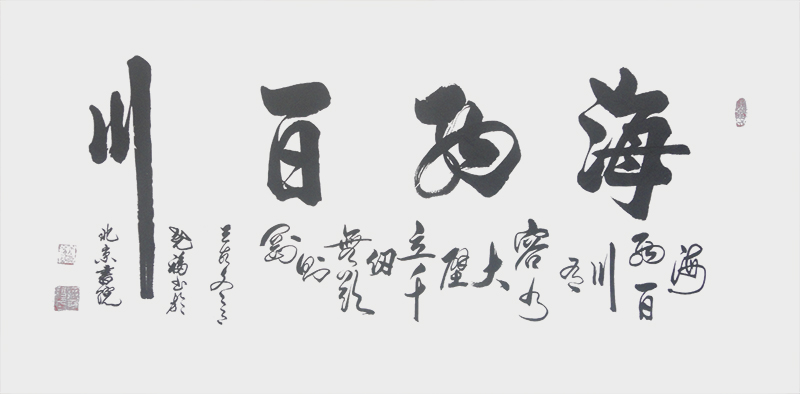 海納百川
海
納百
川
有
容乃
大
壁
立千
仞
無欲
則
剛
書於
北京書院